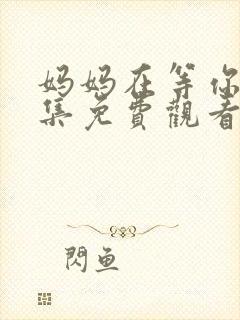 妈妈在等你
集免費觀看
閃鱼